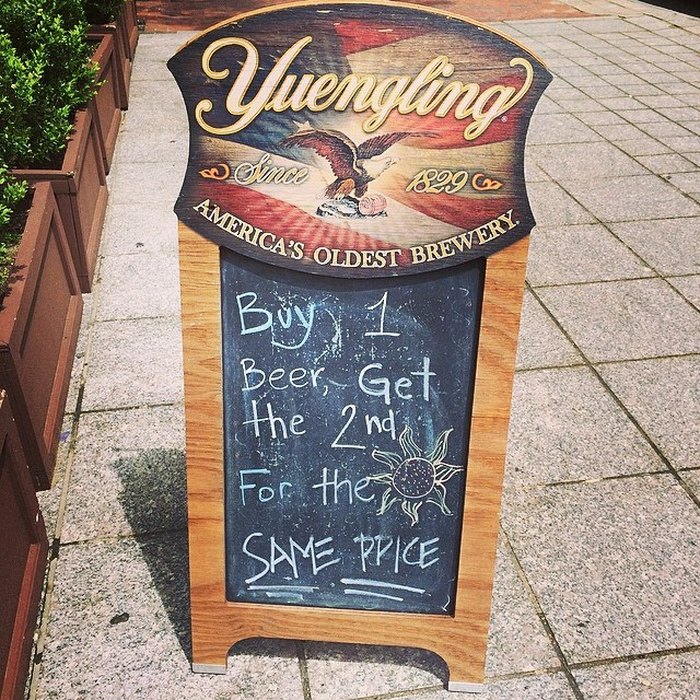 Yuengling®
Since 1829
AMERICA'S OLDEST BREWERY.
Buy 1
Beer, Get
the 2nd
For the
SAME PRICE